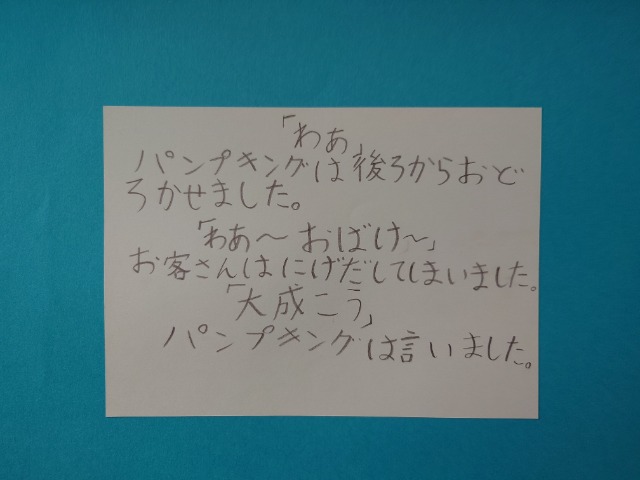 「わあ」
パンプキングは後ろからおど
ろかせました。
「わあ～おばけ～」
お客さんはにげだしてしまいました。
「大成こう」
パンプキングは言いました。